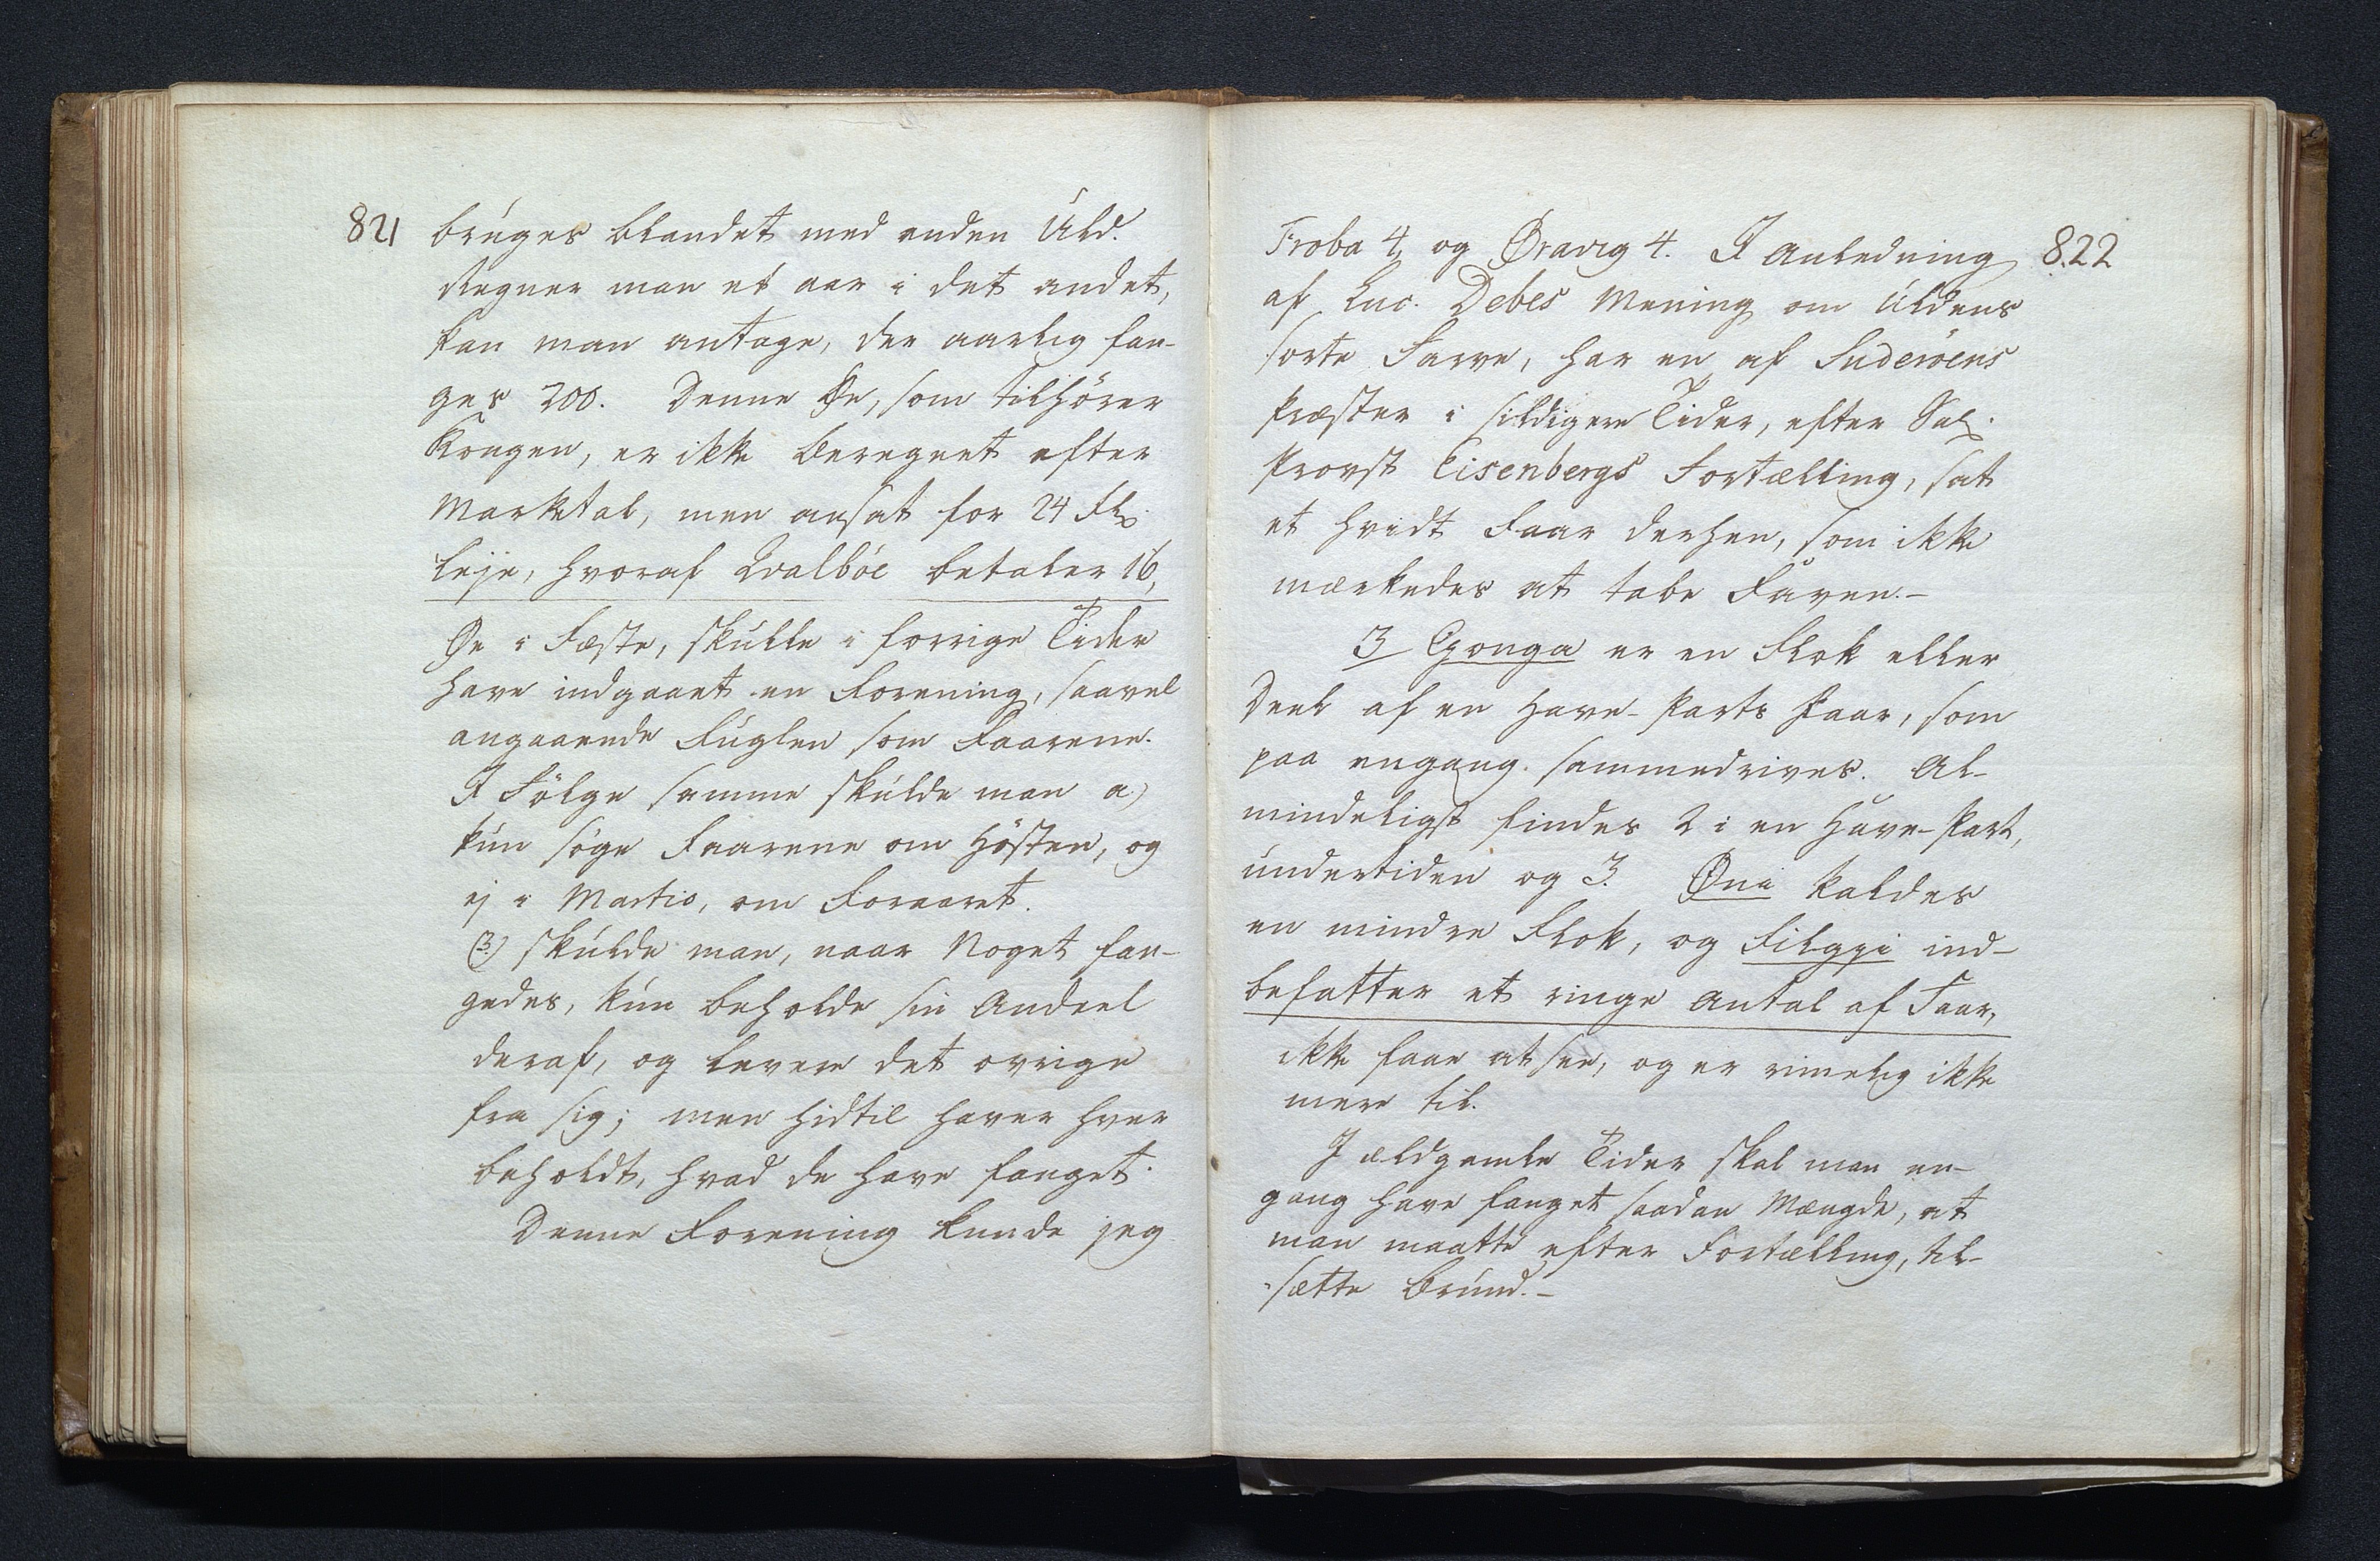 821
bruges blandet med anden Uld.
Regner man et aar i det andet,
kan man antage, der aarlig fan-
ges 200. Denne Øe, som tilhörer
Kongen, er ikke beregnet efter
Marketal, men ansat for 24 Sk
Leje, hvoraf Qvalböe betaler 16,
Øe i Fæste, skulle i forrige Tider
have indgaaet en Forening, saavel
angaaende Fuglen som Faarene.
I Fölge samme skulde man a)
kun söge Faarene om Hösten, og
ej i Martio, om Foraaret.
β) skulde man, naar Noget fan-
gedes, kun beholde sin Andeel
deraf, og levere det øvrige
fra sig; men hidtil haver hver
beholdt, hvad de have fanget.
Denne Forening kunde jeg
822
Froba 4, og Øravig 4. I Anledning
af Luc. Debes Mening om Uldens
sorte Farve, har en af Suderöens
Præster i sildigere Tider, efter Sal.
Provst Eisenbergs Fortælling, sat
et hvidt Faar derhen, som ikke
mærkedes at tabe Farven.-
3 Gonga er en Flok eller
Deel af en Have-Parts Faar, som
paa engang sammedrives. Al-
mindeligst findes 2 i en Have-Part,
undertiden og 3. Øni kaldes
en mindre Flok, og Filgγi ind-
befatter et ringe Antal af Faar,
ikke faae at see, og er rimelig ikke
mere til.
I ældgamle Tider skal man en-
gang have fanget saadan Mængde, at
man maatte efter Fortælling, til-
sætte Brund.-